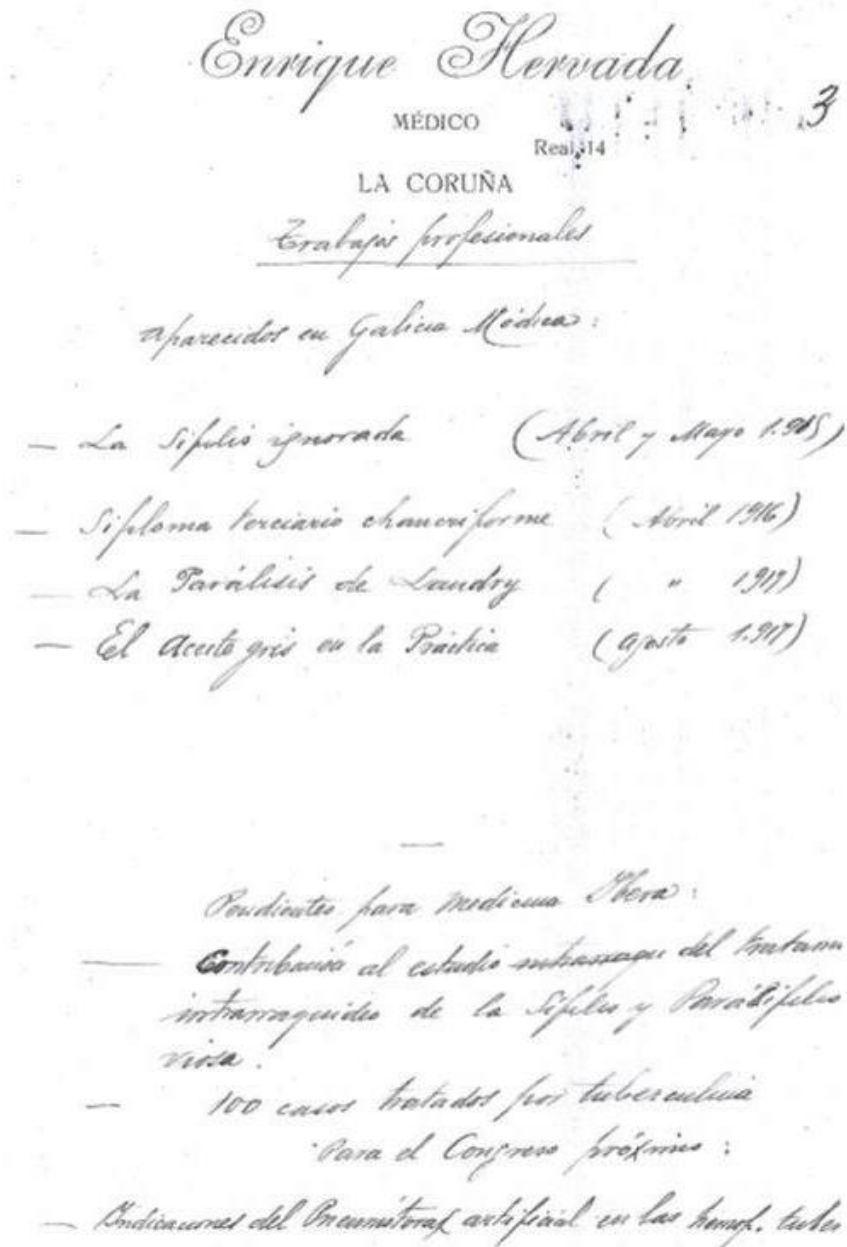 Enrique Hervada
3
MÉDICO
Real, 14
LA CORUÑA
Trabajos profesionales
Aparecidos en Galicia Médica:
— La Sífilis ignorada (Abril y Mayo 1.915)
— Sifiloma terciario chancriforme (Abril 1916)
— La Parálisis de Landry ( " 1917)
— El Aceite gris en la Práctica (Agosto 1.917)
—
Pendientes para Medicina Ibera:
— Contribución al estudio del tratam
intrarraquideo de la Sífilis y Parásifilis
viosa.
— 100 casos tratados por tuberculina
Para el Congreso próximo:
— Indicaciones del Pneumotorax artificial en las hemop. tuber